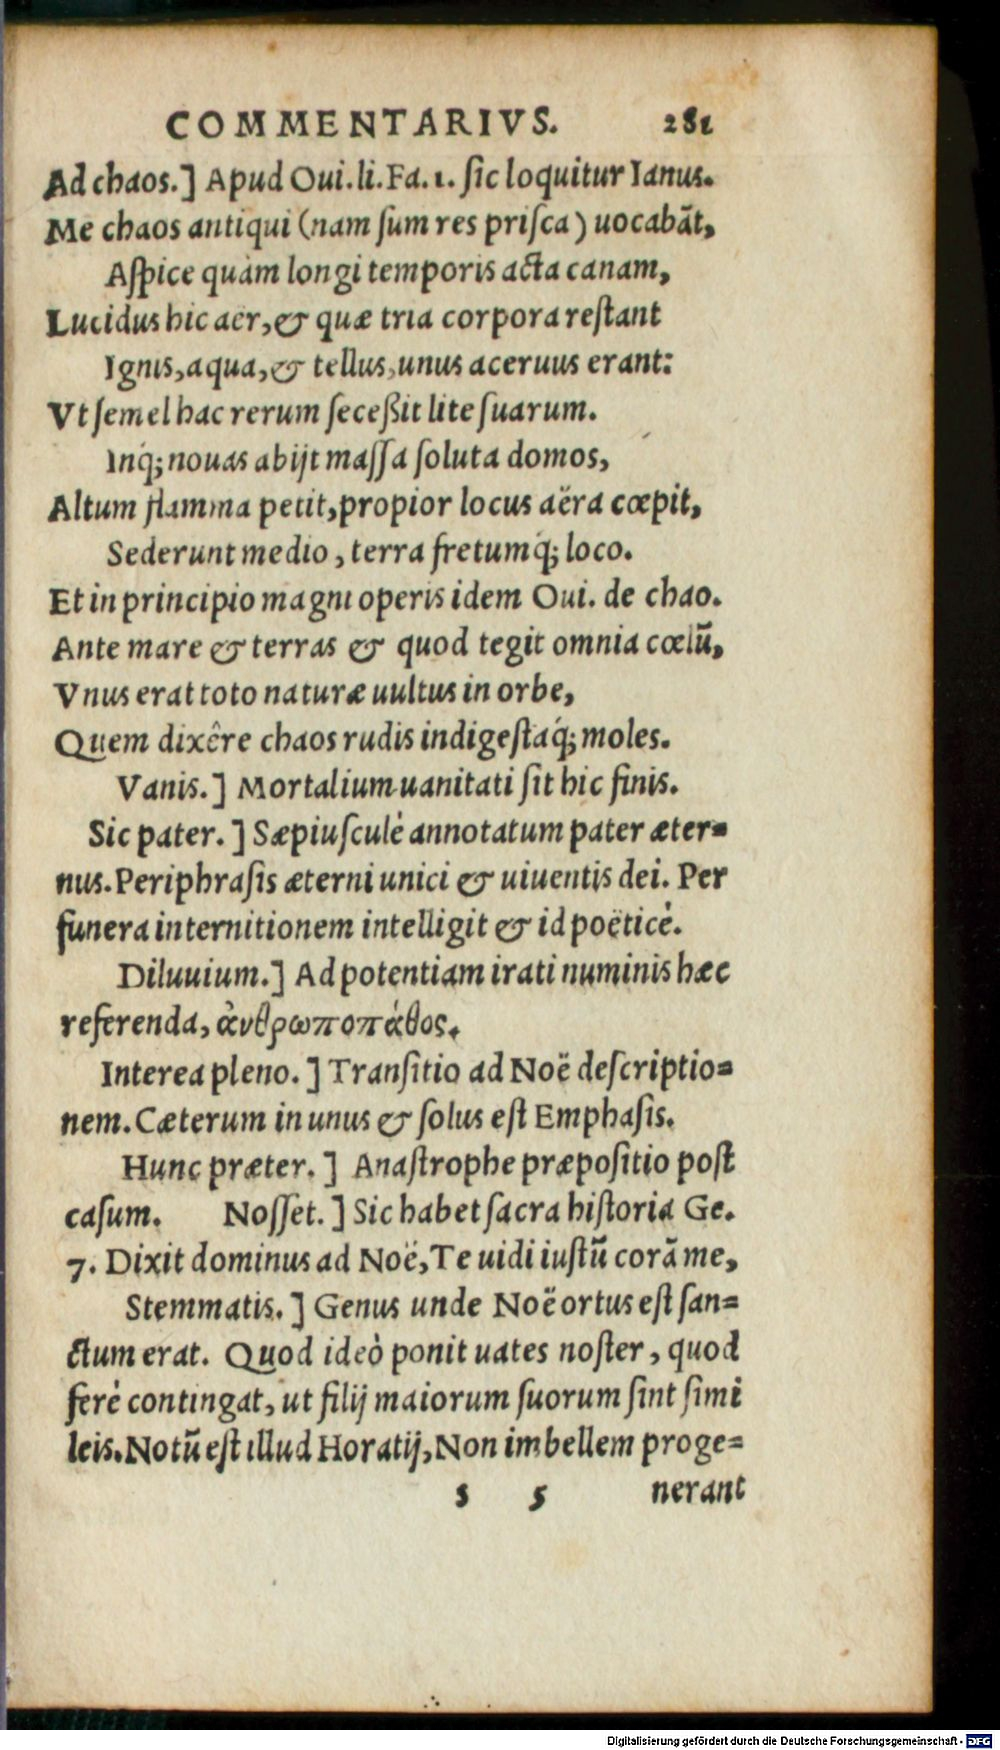 COMMENTARIVS. 281
Ad chaos.] Apud Oui. li. Fa. 1. ſic loquitur Ianus.
Me chaos antiqui (nam ſum res priſca) uocabāt,
Aſpice quàm longi temporis acta canam,
Lucidus hic aër, & quæ tria corpora reſtant
Ignis, aqua, & tellus, unus aceruus erant:
Vt ſemel hac rerum ſeceßit lite ſuarum.
Inq́; nouas abijt maſſa ſoluta domos,
Altum flamma petit, propior locus aëra cœpit,
Sederunt medio, terra fretumq́; loco.
Et in principio magni operis idem Oui. de chao.
Ante mare & terras & quod tegit omnia cœlũ,
Vnus erat toto naturæ uultus in orbe,
Quem dixêre chaos rudis indigeſtaq́; moles.
Vanis.] Mortalium uanitati ſit hic finis.
Sic pater.] Sæpiuſculè annotatum pater æter=
nus. Periphraſis æterni unici & uiuentis dei. Per
funera internitionem intelligit & id poëticè.
Diluuium.] Ad potentiam irati numinis hæc
referenda, ἀνθρωποπάθος.
Interea pleno.] Tranſitio ad Noë deſcriptio=
nem. Cæterum in unus & ſolus eſt Emphaſis.
Hunc præter.] Anaſtrophe præpoſitio poſt
caſum. Noſſet.] Sic habet ſacra hiſtoria Ge.
7. Dixit dominus ad Noë, Te uidi iuſtũ corā me,
Stemmatis.] Genus unde Noë ortus eſt ſan=
ctum erat. Quod ideò ponit uates noſter, quod
ferè contingat, ut filij maiorum ſuorum ſint ſimi
leis. Notũ eſt illud Horatij, Non imbellem proge=
s 5 nerant
Digitalisierung gefördert durch die Deutsche Forschungsgemeinschaft - DFG